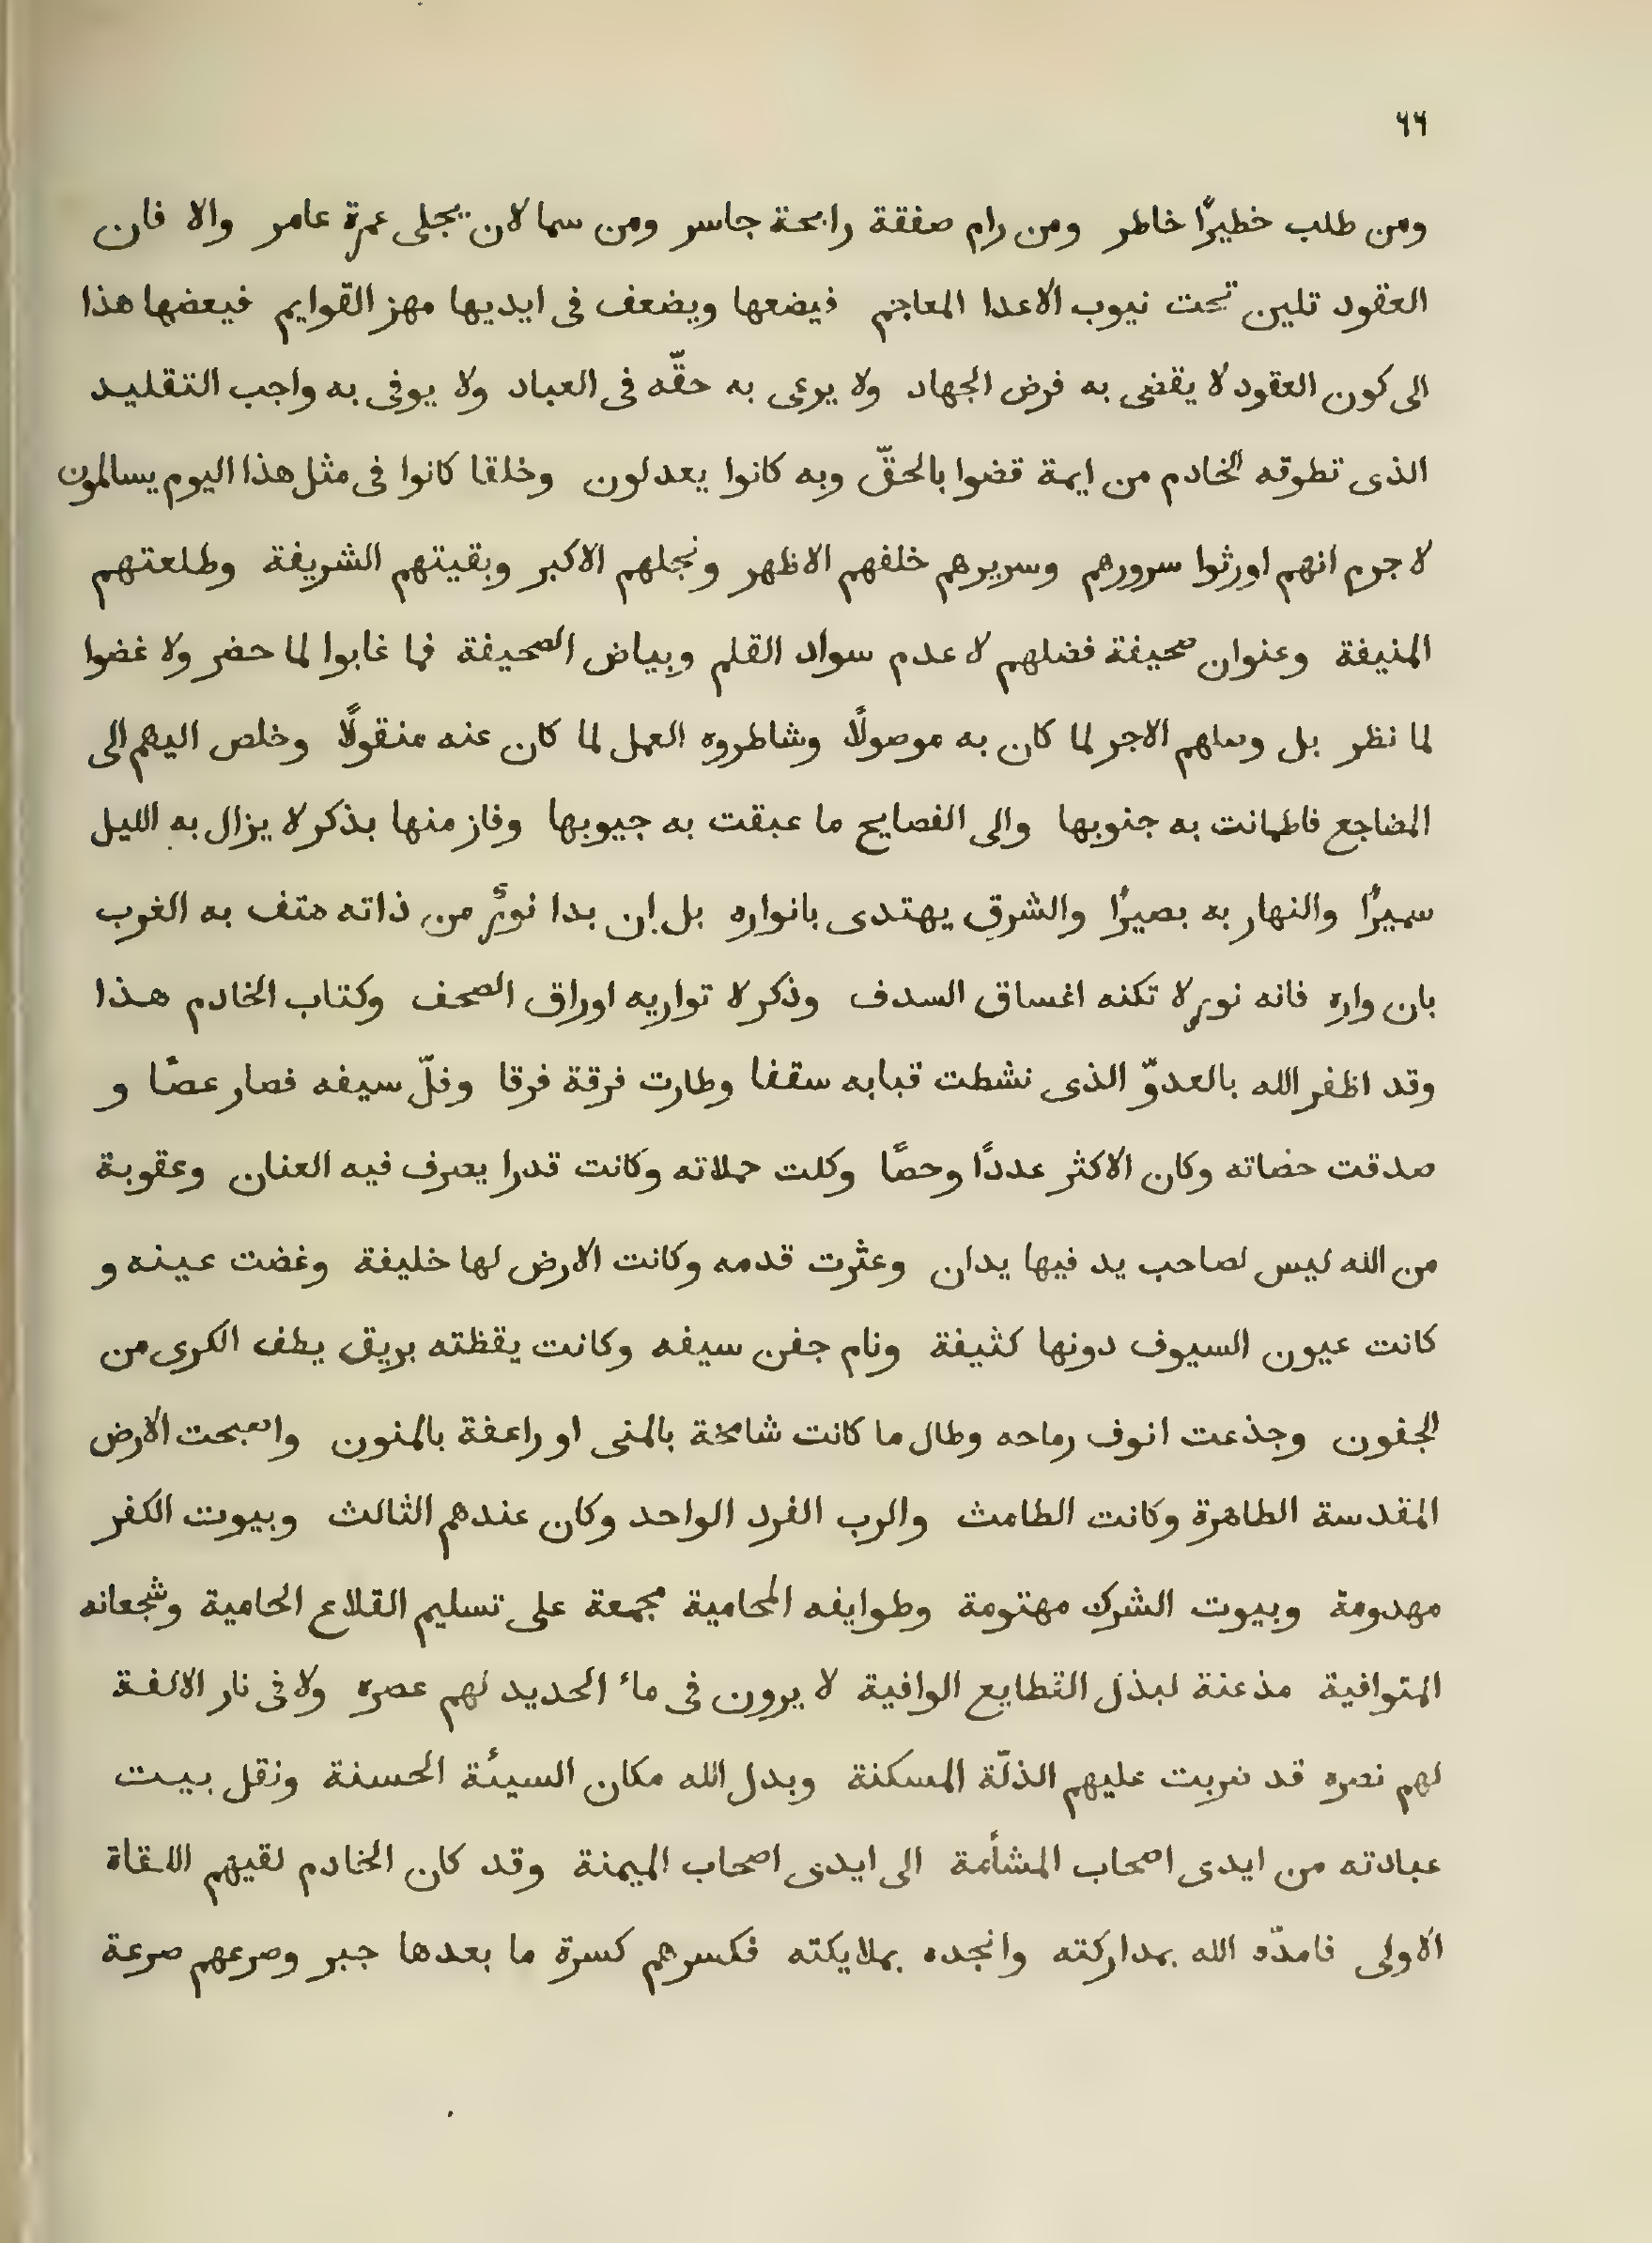 ٦٦
ومن طلب خطيرًا خاطر ومن رام صفقة رابحة جاسر ومن سما لان يجلى عمرة عامر والا فان
العقود تلين تحت نيوب الاعدا المعاجم فيضعها ويضعف فى ايديها مهز القوايم فيعضها هذا
الى كون العقود لا يقضى به فرض الجهاد ولا يرعى به حقّه فى العباد ولا يوفى به واجب التقليد
الذى تطوقه الخادم من ايمة قضوا بالحقّ وبه كانوا يعدلون وخلقا كانوا فى مثل هذا اليوم يسالمون
لا جرم انهم اورثوا سرورهم وسريرهم خلفهم الاظهر ونجلهم الاكبر وبقيتهم الشريفة وطلعتهم
المنيفة وعنوان صحيفة فضلهم لا عدم سواد القلم وبياض الصحيفة فما غابوا لما حضر ولا غضوا
لما نظر بل وصلهم الاجر لما كان به موصولًا وشاطروه العمل لما كان عنه منقولًا وخلص اليهم الى
المضاجع فاطمانت به جنوبها والى الفصايح ما عبقت به جيوبها وفاز منها بذكر لا يزال به الليل
سميرًا والنهار به بصيرًا والشرق يهتدى بانواره بل ان بدا نورٌ من ذاته هتف به الغرب
بان واره فانه نور لا تكنه اغساق السدف وذكر لا تواريه اوراق الصحف وكتاب الخادم هذا
وقد اظفر الله بالعدوّ الذى نشطت قبابه سقفا وطارت فرقة فرقا وفلّ سيفه فصار عصًا و
صدقت حضاته وكان الاكثر عددًا وحصًا وكلت حملاته وكانت قدرا يصرف فيه العنان وعقوبة
من الله ليس لصاحب يد فيها يدان وعثرت قدمه وكانت الارض لها خليفة وغضت عينه و
كانت عيون السيوف دونها كثيفة ونام جفن سيفه وكانت يقظته بريق يطف الكرى من
الجفون وجذعت انوف رماحه وطال ما كانت شامخة بالمنى او راعفة بالمنون واصبحت الارض
المقدسة الطاهرة وكانت الطامث والرب الفرد الواحد وكان عندهم الثالث وبيوت الكفر
مهدومة وبيوت الشرك مهتومة وطوايفه المحامية مجمعة على تسليم القلاع الحامية وشجعانه
المتوافية مذعنة لبذل القطايع الوافية لا يرون فى ماء الحديد لهم عصره ولا فى نار الالفة
لهم نصره قد ضربت عليهم الذلّة المسكنة وبدل الله مكان السيئة الحسنة ونقل بيت
عبادته من ايدى اصحاب المشأمة الى ايدى اصحاب الميمنة وقد كان الخادم لقيهم اللقاة
الاولى فامدّه الله بمداركته وانجده بملايكته فكسرهم كسرة ما بعدها جبر وصرعهم صرعة